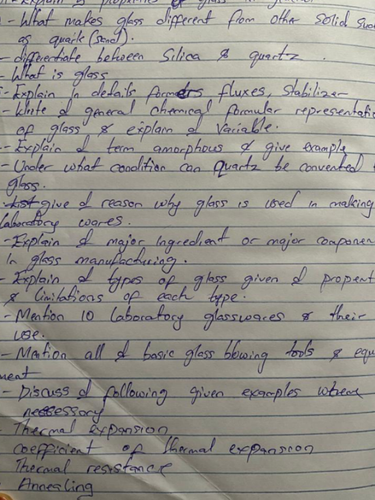 - Explain properties of glass in general
- What makes glass different from other solid such
as quark (sand).
- differentiate between Silica & quartz.
- What is glass
- Explain in details formers fluxes, Stabilizer
- Write d general chemical formular representatio
of glass & explain d Variable.
- Explain d term amorphous & give example
- Under what condition can quartz be convented
glass.
- give d reason why glass is used in making
laboratory wares.
- Explain d major ingredient or major componen
in glass manufacturing.
- Explain d types of glass given d propert
& limitations of each type.
- Mention 10 laboratory glasswares & their
use.
- Mention all d basic glass blowing tools & equ
ment
- Discuss d following given examples where
necessory
- Thermal expansion
coefficient of thermal expansion
Thermal resistance
- Annealing